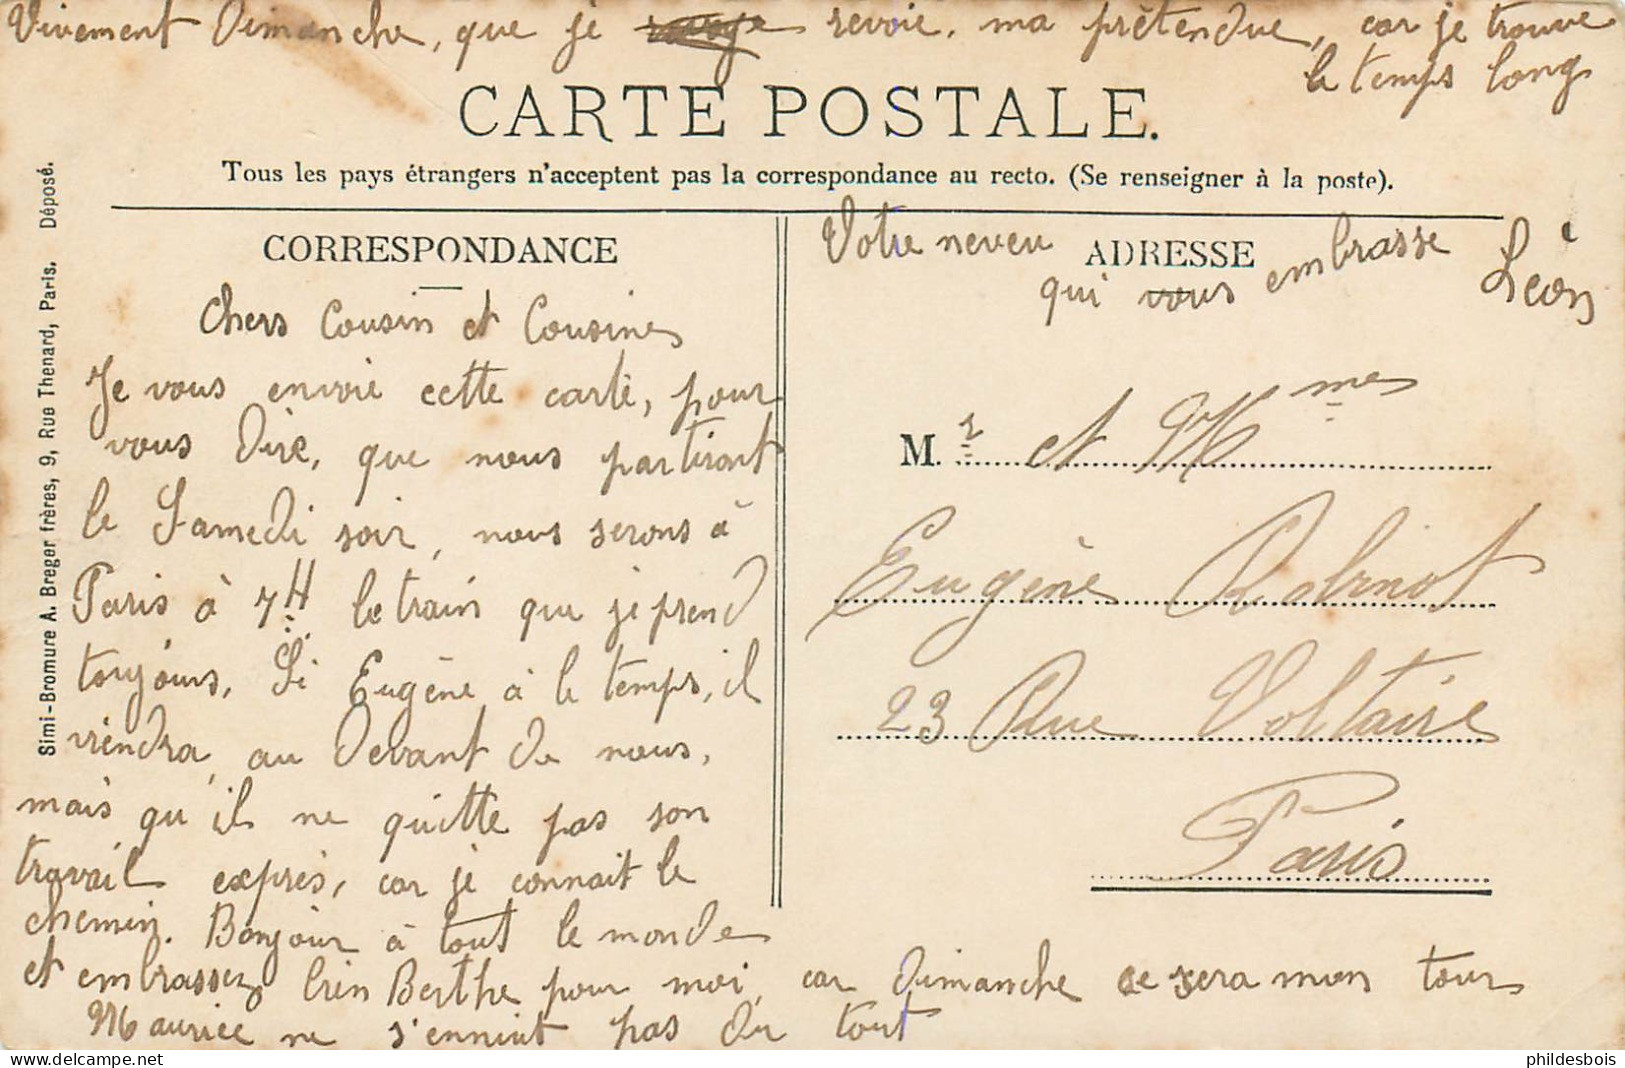 Vivement Dimanche, que je revoie, ma prétendue, car je trouve
le temps long
CARTE POSTALE.
Tous les pays étrangers n'acceptent pas la correspondance au recto. (Se renseigner à la poste).
Simi-Bromure A. Breger frères, 9, Rue Thenard, Paris. Déposé.
CORRESPONDANCE
Chers Cousin et Cousines
Je vous envoie cette carte, pour
vous dire, que nous partiront
le Samedi soir, nous serons à
Paris à 7H le train que je prend
toujours. Si Eugène à le temps, il
viendra au devant de nous,
mais qu'il ne quitte pas son
travail exprès, car je connait le
chemin. Bonjour à tout le monde
et embrassez bien Berthe pour moi, car dimanche ce sera mon tour
Maurice ne s'ennuit pas du tout
Votre neveu
ADRESSE
qui vous embrasse
Léon
M.r et Mmes
Eugène
23 Rue Voltaire
Paris
phildesbois